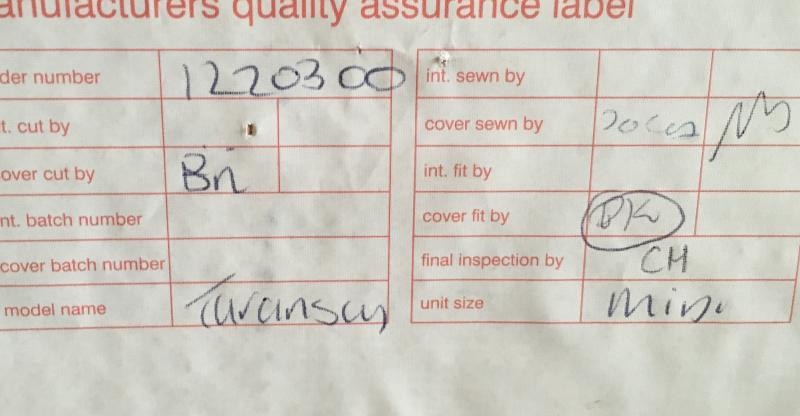 anufacturers quality assurance label
der number 1220300
t. cut by
over cut by Bn
nt. batch number
cover batch number
model name Taransay
int. sewn by
cover sewn by
int. fit by
cover fit by
final inspection by CH
unit size mini